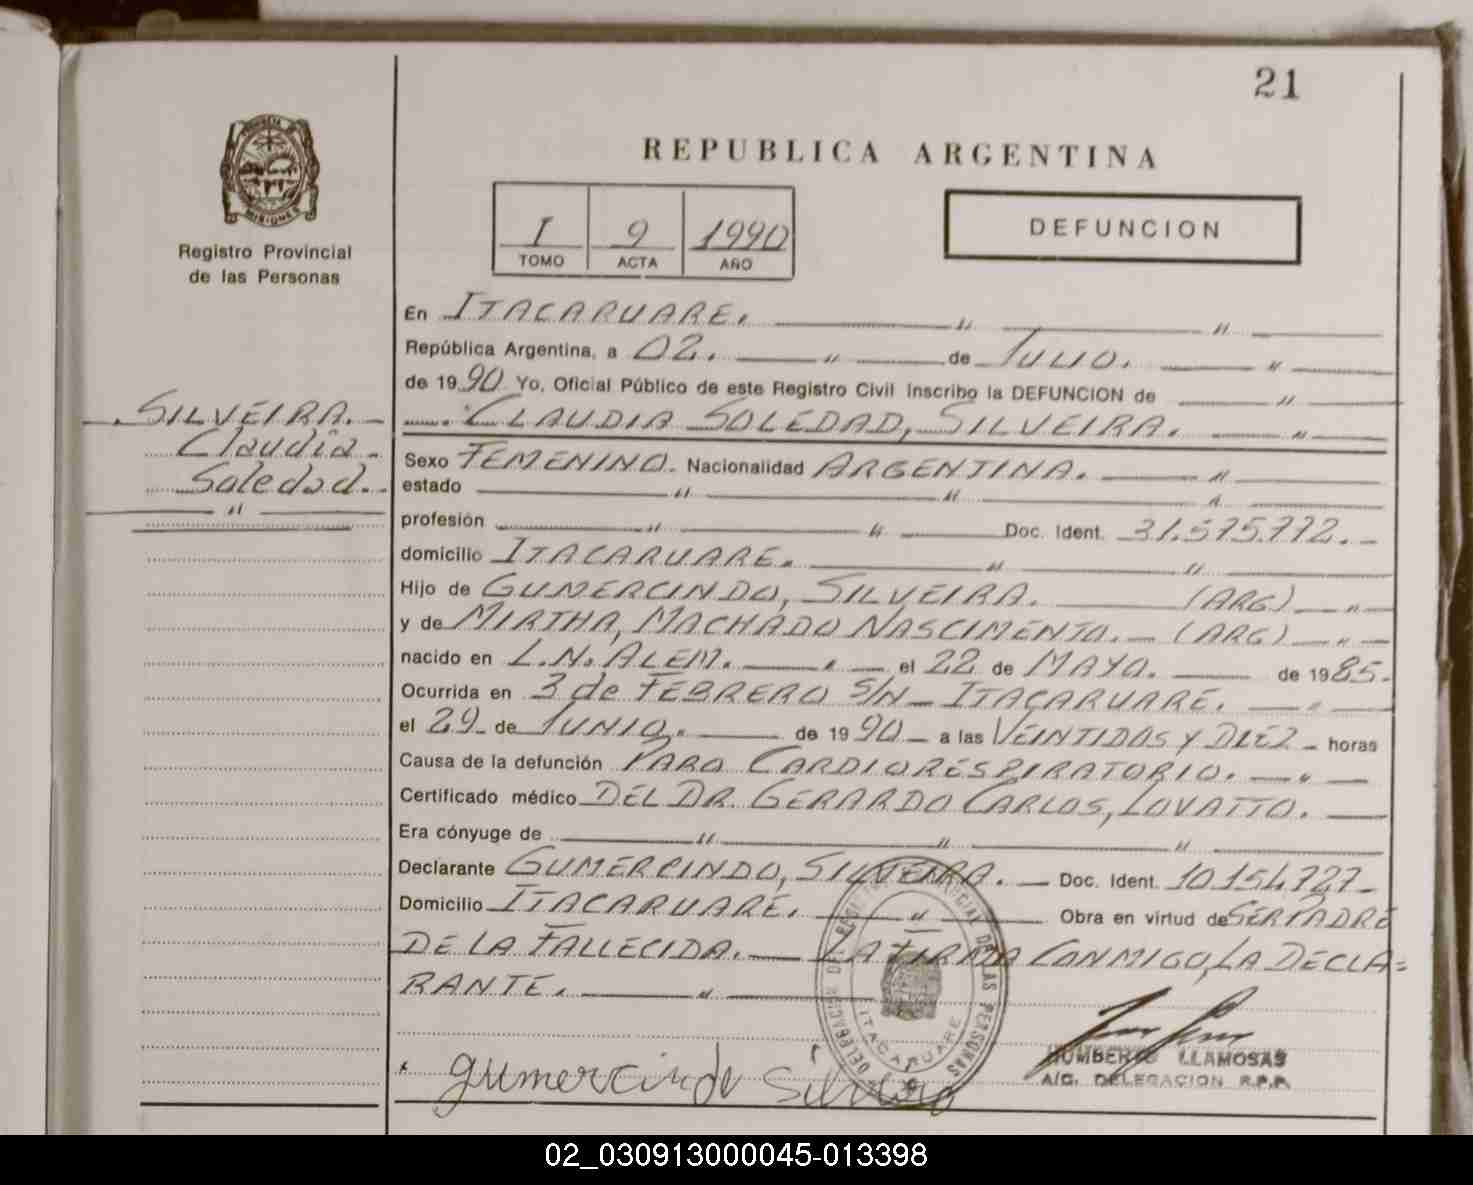 21
REPUBLICA ARGENTINA
PROVINCIA DE
MISIONES
Registro Provincial
de las Personas
I 9 1990
TOMO ACTA AÑO
DEFUNCION
En ITACARUARE. " "
República Argentina, a 02. " de JULIO. "
de 1990 Yo, Oficial Público de este Registro Civil inscribo la DEFUNCION de "
CLAUDIA SOLEDAD, SILVEIRA. "
SILVEIRA.-
Claudia-
Soledad.-
"
Sexo FEMENINO. Nacionalidad ARGENTINA. "
estado " " "
profesión " " Doc. Ident. 31.575.772.-
domicilio ITACARUARE. " "
Hijo de GUMERCINDO, SILVEIRA. (ARG) "
y de MIRTHA, MACHADO NASCIMENTO.- (ARG) "
nacido en L.N. ALEM. " el 22 de MAYO. de 1985.
Ocurrida en 3 de FEBRERO S/N- ITACARUARE. "
el 29 de JUNIO. de 1990 a las VEINTIDOS Y DIEZ - horas
Causa de la defunción PARO CARDIORESPIRATORIO. "
Certificado médico DEL DR. GERARDO CARLOS, LOVATTO.
Era cónyuge de " " "
Declarante GUMERCINDO, SILVEIRA. Doc. Ident. 10.154.727-
Domicilio ITACARUARE. " Obra en virtud de SER PADRE
DE LA FALLECIDA. LA FIRMA CONMIGO, LA DECLA=
RANTE. "
DELEGACION DEL REGISTRO PROVINCIAL DE LAS PERSONAS
ITACARUARE
gumercindo Silveira
HUMBERTO LLAMOSAS
A/C. DELEGACION R.P.P.
02_030913000045-013398